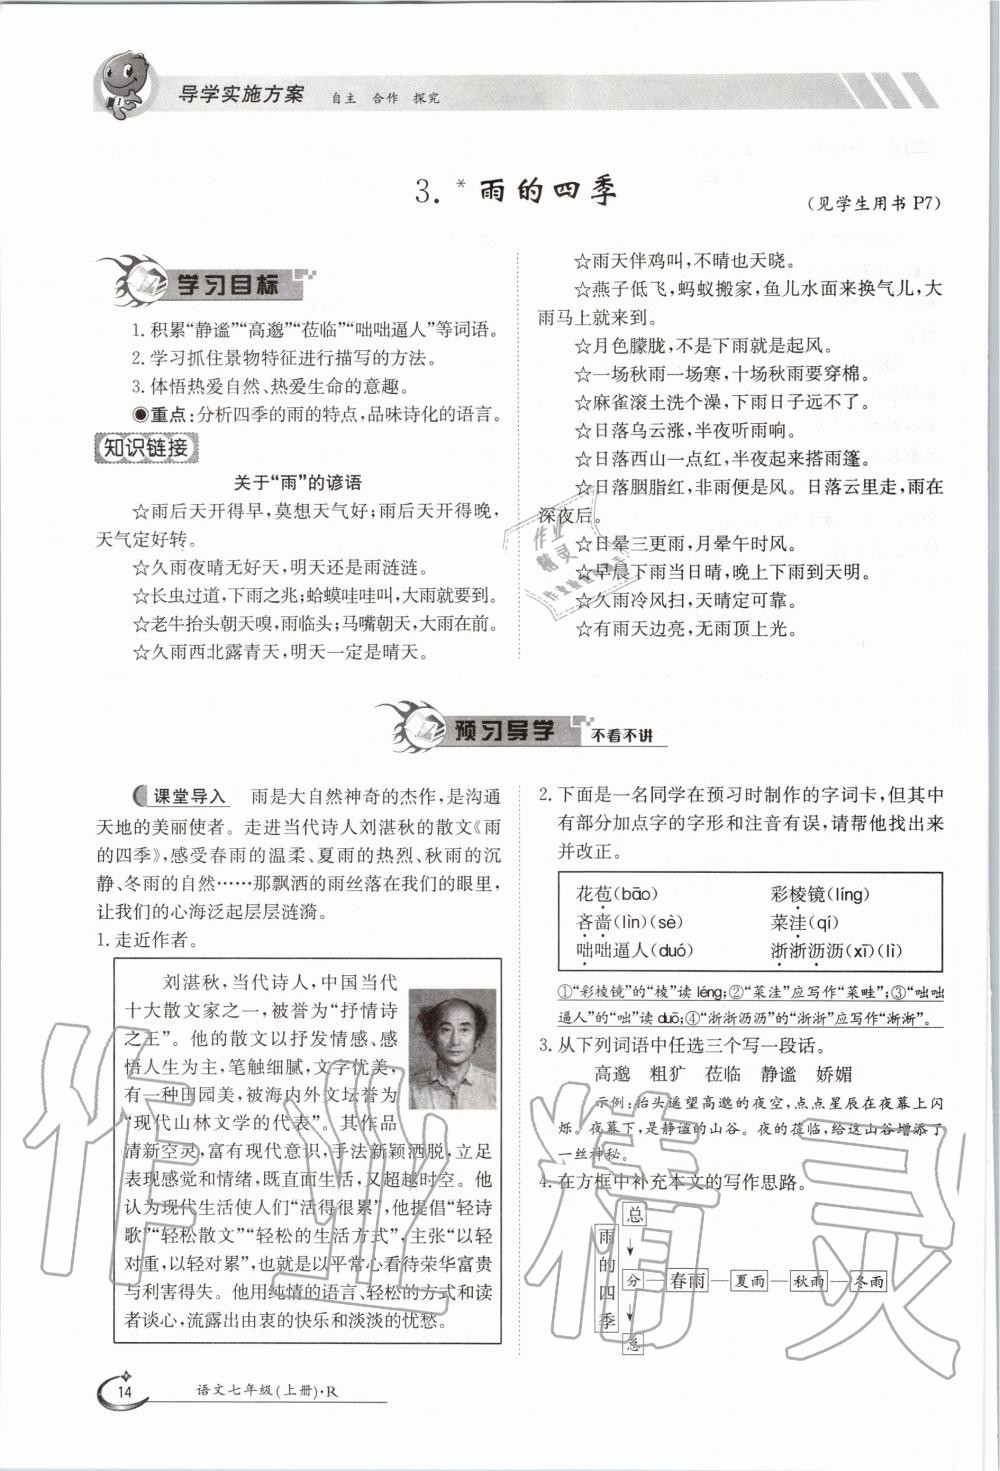 导学实施方案 自主 合作 探究
3.*雨的四季
(见学生用书 P7)
学习目标
1.积累“静谧”“高邈”“莅临”“咄咄逼人”等词语。
2.学习抓住景物特征进行描写的方法。
3.体悟热爱自然、热爱生命的意趣。
◉重点:分析四季的雨的特点,品味诗化的语言。
知识链接
关于“雨”的谚语
☆雨后天开得早,莫想天气好;雨后天开得晚,
天气定好转。
☆久雨夜晴无好天,明天还是雨涟涟。
☆长虫过道,下雨之兆;蛤蟆哇哇叫,大雨就要到。
☆老牛抬头朝天嗅,雨临头;马嘴朝天,大雨在前。
☆久雨西北露青天,明天一定是晴天。
☆雨天伴鸡叫,不晴也天晓。
☆燕子低飞,蚂蚁搬家,鱼儿水面来换气儿,大
雨马上就来到。
☆月色朦胧,不是下雨就是起风。
☆一场秋雨一场寒,十场秋雨要穿棉。
☆麻雀滚土洗个澡,下雨日子远不了。
☆日落乌云涨,半夜听雨响。
☆日落西山一点红,半夜起来搭雨篷。
☆日落胭脂红,非雨便是风。日落云里走,雨在
深夜后。
☆日晕三更雨,月晕午时风。
☆早晨下雨当日晴,晚上下雨到天明。
☆久雨冷风扫,天晴定可靠。
☆有雨天边亮,无雨顶上光。
预习导学 不看不讲
课堂导入 雨是大自然神奇的杰作,是沟通
天地的美丽使者。走进当代诗人刘湛秋的散文《雨
的四季》,感受春雨的温柔、夏雨的热烈、秋雨的沉
静、冬雨的自然……那飘洒的雨丝落在我们的眼里,
让我们的心海泛起层层涟漪。
1.走近作者。
刘湛秋,当代诗人,中国当代
十大散文家之一,被誉为“抒情诗
之王”。他的散文以抒发情感、感
悟人生为主,笔触细腻,文字优美,
有一种田园美,被海内外文坛誉为
“现代山林文学的代表”。其作品
清新空灵,富有现代意识,手法新颖洒脱,立足
表现感觉和情绪,既直面生活,又超越时空。他
认为现代生活使人们“活得很累”,他提倡“轻诗
歌”“轻松散文”“轻松的生活方式”,主张“以轻
对重,以轻对累”,也就是以平常心看待荣华富贵
与利害得失。他用纯情的语言、轻松的方式和读
者谈心,流露出由衷的快乐和淡淡的忧愁。
2.下面是一名同学在预习时制作的字词卡,但其中
有部分加点字的字形和注音有误,请帮他找出来
并改正。
花苞(bāo) 彩棱镜(líng)
吝啬(lìn)(sè) 菜洼(qí)
咄咄逼人(duó) 浙浙沥沥(xī)(lì)
①“彩棱镜”的“棱”读 léng;②“菜洼”应写作“菜畦”;③“咄咄
逼人”的“咄”读 duō;④“浙浙沥沥”的“浙浙”应写作“淅淅”。
3.从下列词语中任选三个写一段话。
高邈 粗犷 莅临 静谧 娇媚
示例:抬头遥望高邈的夜空,点点星辰在夜幕上闪
烁。夜幕下,是静谧的山谷。夜的莅临,给这山谷增添了
一丝神秘。
4.在方框中补充本文的写作思路。
雨的四季
总
分 春雨 夏雨 秋雨 冬雨
总
14 语文七年级(上册)·R
作业精灵
作业
精灵